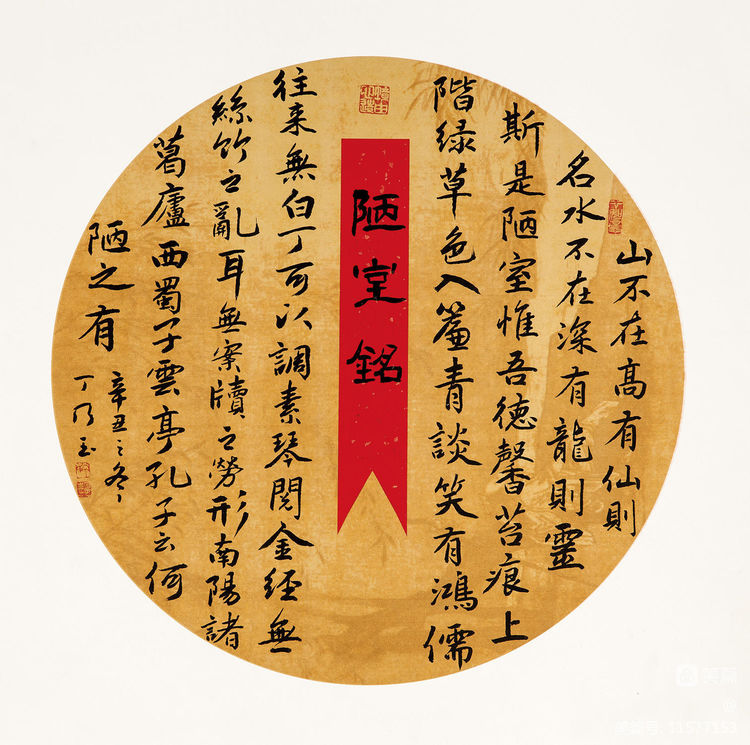 山不在高有仙則
名水不在深有龍則靈
斯是陋室惟吾德馨苔痕上
階绿草色入簾青談笑有鴻儒
陋室銘
往来無白丁可以調素琴閱金經無
絲竹之亂耳無案牘之勞形南陽諸
葛廬西蜀子雲亭孔子云何
陋之有
辛丑之冬
丁乃玉
美篇
美篇号: 11577153